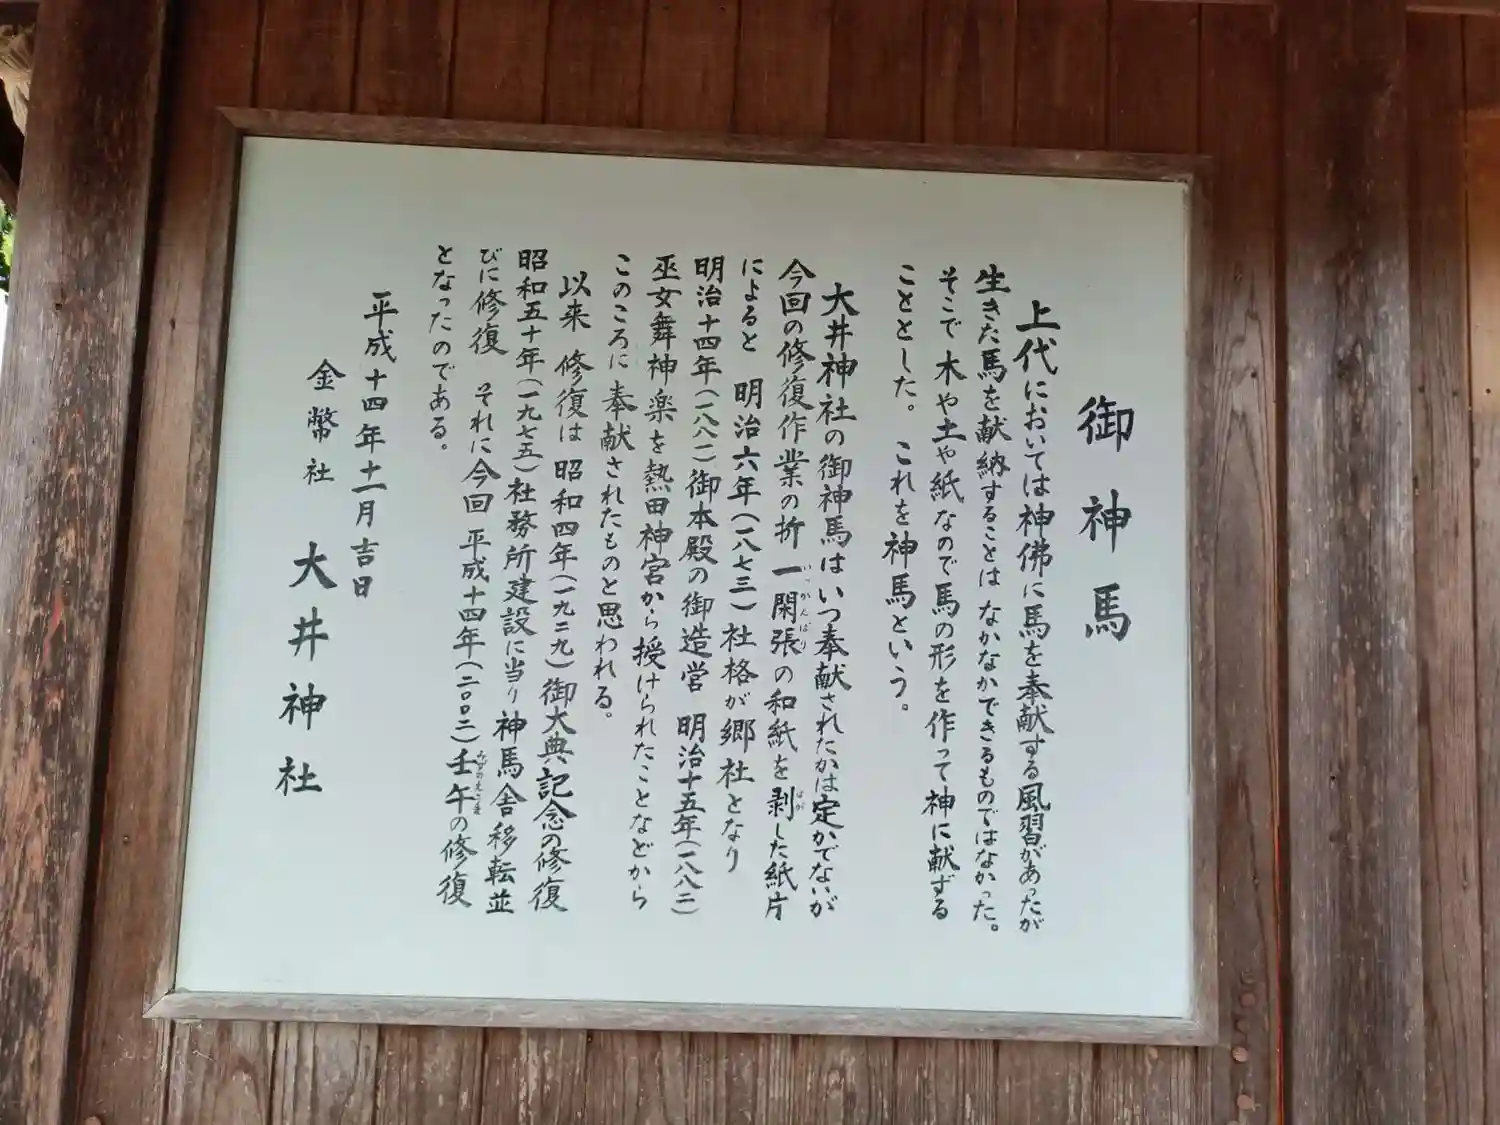 御神馬
上代においては神佛に馬を奉献する風習があったが
生きた馬を献納することは なかなかできるものではなかった。
そこで 木や土や紙なので馬の形を作って神に献ずる
こととした。 これを神馬という。
大井神社の御神馬はいつ奉献されたかは定かでないが
今回の修復作業の折 一閑張の和紙を剥した紙片
いっかんばり
はが
によると 明治六年(一八七三)社格が郷社となり
明治十四年(一八八一)御本殿の御造営 明治十五年(一八八二)
巫女舞神楽を熱田神宮から授けられたことなどから
このころに奉献されたものと思われる。
以来 修復は 昭和四年(一九二九)御大典記念の修復
昭和五十年(一九七五)社務所建設に当り神馬舎移転並
びに修復 それに今回 平成十四年(二〇〇二)壬午の修復
みずのえうま
となったのである。
平成十四年十一月吉日
金幣社 大井神社